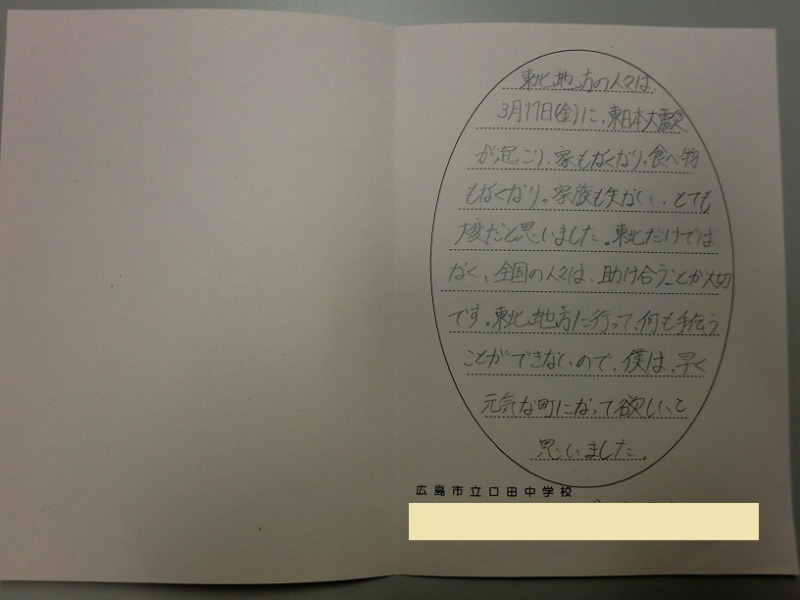 東北地方の人々は、
3月11日(金)に、東日本大震災
が起こり、家もなくなり、食べ物
もなくなり。家族も失ない、とても
大変だと思いました。東北だけでは
なく、全国の人々は、助け合うことが大切
です。東北地方に行って、何も手伝う
ことができないので、僕は、早く
元気な町になって欲しいと
思いました。
広島市立口田中学校